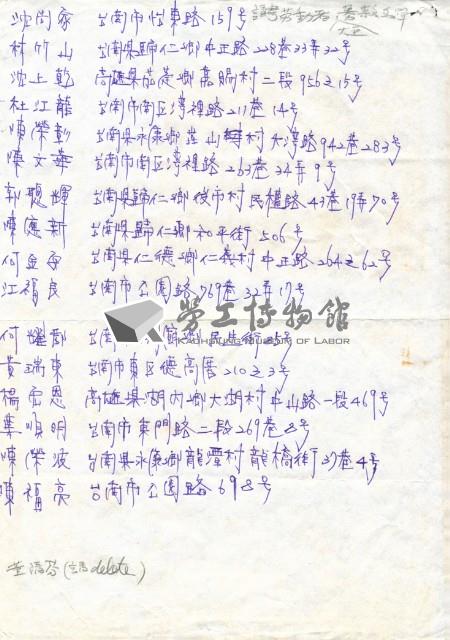 沈尚家 台南市怡東路159号
林竹山 台南県歸仁鄉中正路228巷33弄32号
沈上乾 高雄県茄萣鄉嘉賜村二段956之15号
杜江龍 台南市南區灣裡路217巷14号
陳榮彰 台南県永康鄉 山 村大灣路942巷283号
陳文華 台南市南区湾裡路263巷34弄9号
郭聰輝 台南県歸仁鄉後市村民權路43巷19弄70号
陳應新 台南県歸仁鄉和平街506号
何金 台南県仁德鄉仁義村中正路264之62号
江福良 台南市公園路769巷32弄17号
勞工博物館
KAOHSIUNG MUSEUM OF LABOR
何耀 台南 民生街 号
黃瑞東 台南市東区德高厝210之3号
楊宏恩 高雄県湖内鄉大湖村中山路一段469号
順明 台南市東門路二段269巷8号
陳榮波 台南県永康鄉龍潭村龍橋街37巷4号
陳福亮 台南市公園路698号
(請delete)